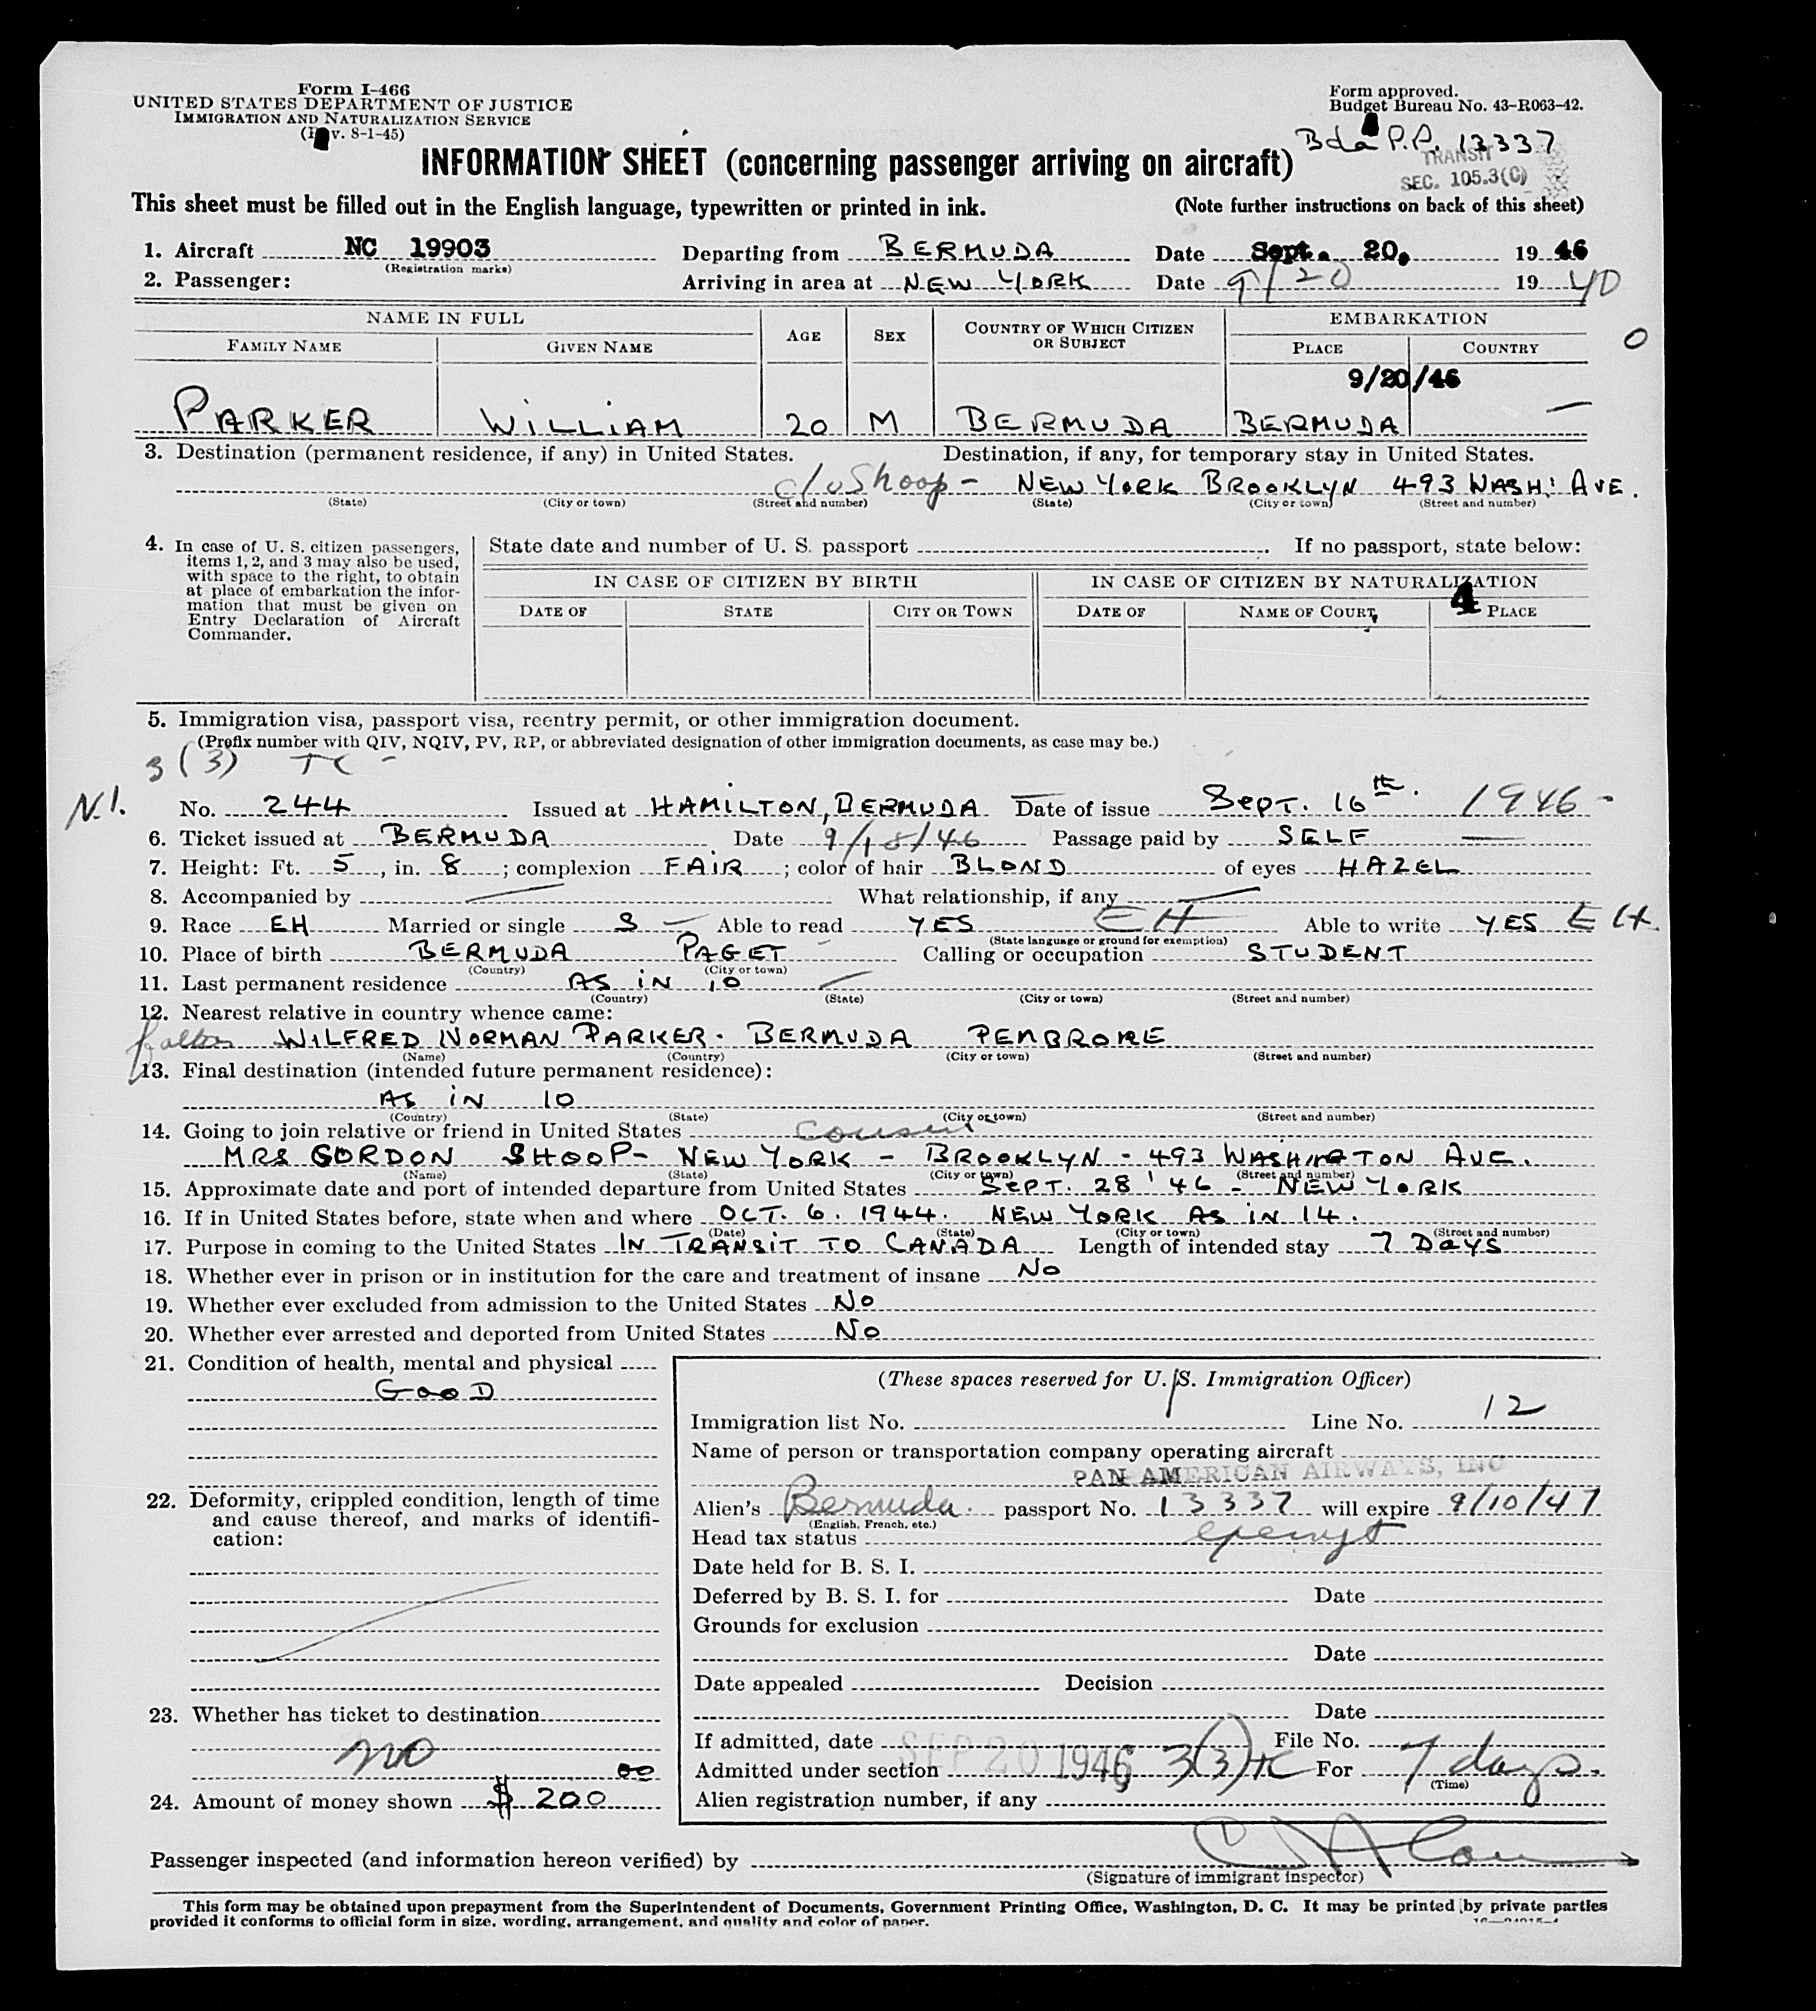 Form I-466
UNITED STATES DEPARTMENT OF JUSTICE
IMMIGRATION AND NATURALIZATION SERVICE
v. 8-1-45)
Form approved.
Budget Bureau No. 43-R063-42.
Bda P.P. 13337
INFORMATION SHEET (concerning passenger arriving on aircraft)
TRANSIT
SEC. 105.3(C)
This sheet must be filled out in the English language, typewritten or printed in ink.
(Note further instructions on back of this sheet)
1. Aircraft NC 19903 Departing from BERMUDA Date Sept. 20, 19 46
(Registration marks)
2. Passenger: Arriving in area at NEW YORK Date 9/20 19
NAME IN FULL AGE SEX COUNTRY OF WHICH CITIZEN OR SUBJECT EMBARKATION
FAMILY NAME GIVEN NAME PLACE COUNTRY
0
9/20/46
PARKER WILLIAM 20 M BERMUDA BERMUDA —
3. Destination (permanent residence, if any) in United States. Destination, if any, for temporary stay in United States.
c/o Shoop - NEW YORK BROOKLYN 493 WASH: AVE.
(State) (City or town) (Street and number) (State) (City or town) (Street and number)
4. In case of U. S. citizen passengers, items 1, 2, and 3 may also be used, with space to the right, to obtain at place of embarkation the information that must be given on Entry Declaration of Aircraft Commander.
State date and number of U. S. passport If no passport, state below:
IN CASE OF CITIZEN BY BIRTH IN CASE OF CITIZEN BY NATURALIZATION
4
DATE OF STATE CITY OR TOWN DATE OF NAME OF COURT PLACE
5. Immigration visa, passport visa, reentry permit, or other immigration document.
(Prefix number with QIV, NQIV, PV, RP, or abbreviated designation of other immigration documents, as case may be.)
3(3) TC -
N.I.
No. 244 Issued at HAMILTON, BERMUDA Date of issue Sept. 16th. 1946 -
6. Ticket issued at BERMUDA Date 9/18/46 Passage paid by SELF
7. Height: Ft. 5, in. 8; complexion FAIR; color of hair BLOND of eyes HAZEL
8. Accompanied by — What relationship, if any —
9. Race EH Married or single S — Able to read YES EH Able to write YES EH
(State language or ground for exemption)
10. Place of birth BERMUDA PAGET Calling or occupation STUDENT
(Country) (City or town)
11. Last permanent residence AS IN 10
(Country) (State) (City or town) (Street and number)
12. Nearest relative in country whence came:
father WILFRED NORMAN PARKER. BERMUDA PEMBROKE
(Name) (Country) (City or town) (Street and number)
13. Final destination (intended future permanent residence):
AS IN 10
(Country) (State) (City or town) (Street and number)
14. Going to join relative or friend in United States cousin
MRS GORDON SHOOP- NEW YORK - BROOKLYN - 493 WASHINGTON AVE.
(Name) (State) (City or town) (Street and number)
15. Approximate date and port of intended departure from United States SEPT. 28 '46 - NEW YORK
16. If in United States before, state when and where OCT. 6. 1944. NEW YORK AS IN 14.
(Date) (State) (City or town) (Street and number)
17. Purpose in coming to the United States IN TRANSIT TO CANADA Length of intended stay 7 DAYS
18. Whether ever in prison or in institution for the care and treatment of insane No
19. Whether ever excluded from admission to the United States No
20. Whether ever arrested and deported from United States No
21. Condition of health, mental and physical
GOOD
22. Deformity, crippled condition, length of time and cause thereof, and marks of identification:
23. Whether has ticket to destination
no
24. Amount of money shown $ 200 00
(These spaces reserved for U. S. Immigration Officer)
Immigration list No. Line No. 12
Name of person or transportation company operating aircraft
PAN AMERICAN AIRWAYS, INC
Alien's Bermuda. passport No. 13337 will expire 9/10/47
(English, French, etc.)
Head tax status exempt
Date held for B. S. I.
Deferred by B. S. I. for Date
Grounds for exclusion
Date
Date appealed Decision
Date
If admitted, date SEP 20 1946 File No.
Admitted under section 3(3) tc For 7 days.
(Time)
Alien registration number, if any
Passenger inspected (and information hereon verified) by
(Signature of immigrant inspector)
This form may be obtained upon prepayment from the Superintendent of Documents, Government Printing Office, Washington, D. C. It may be printed by private parties
provided it conforms to official form in size, wording, arrangement, and quality and color of paper.